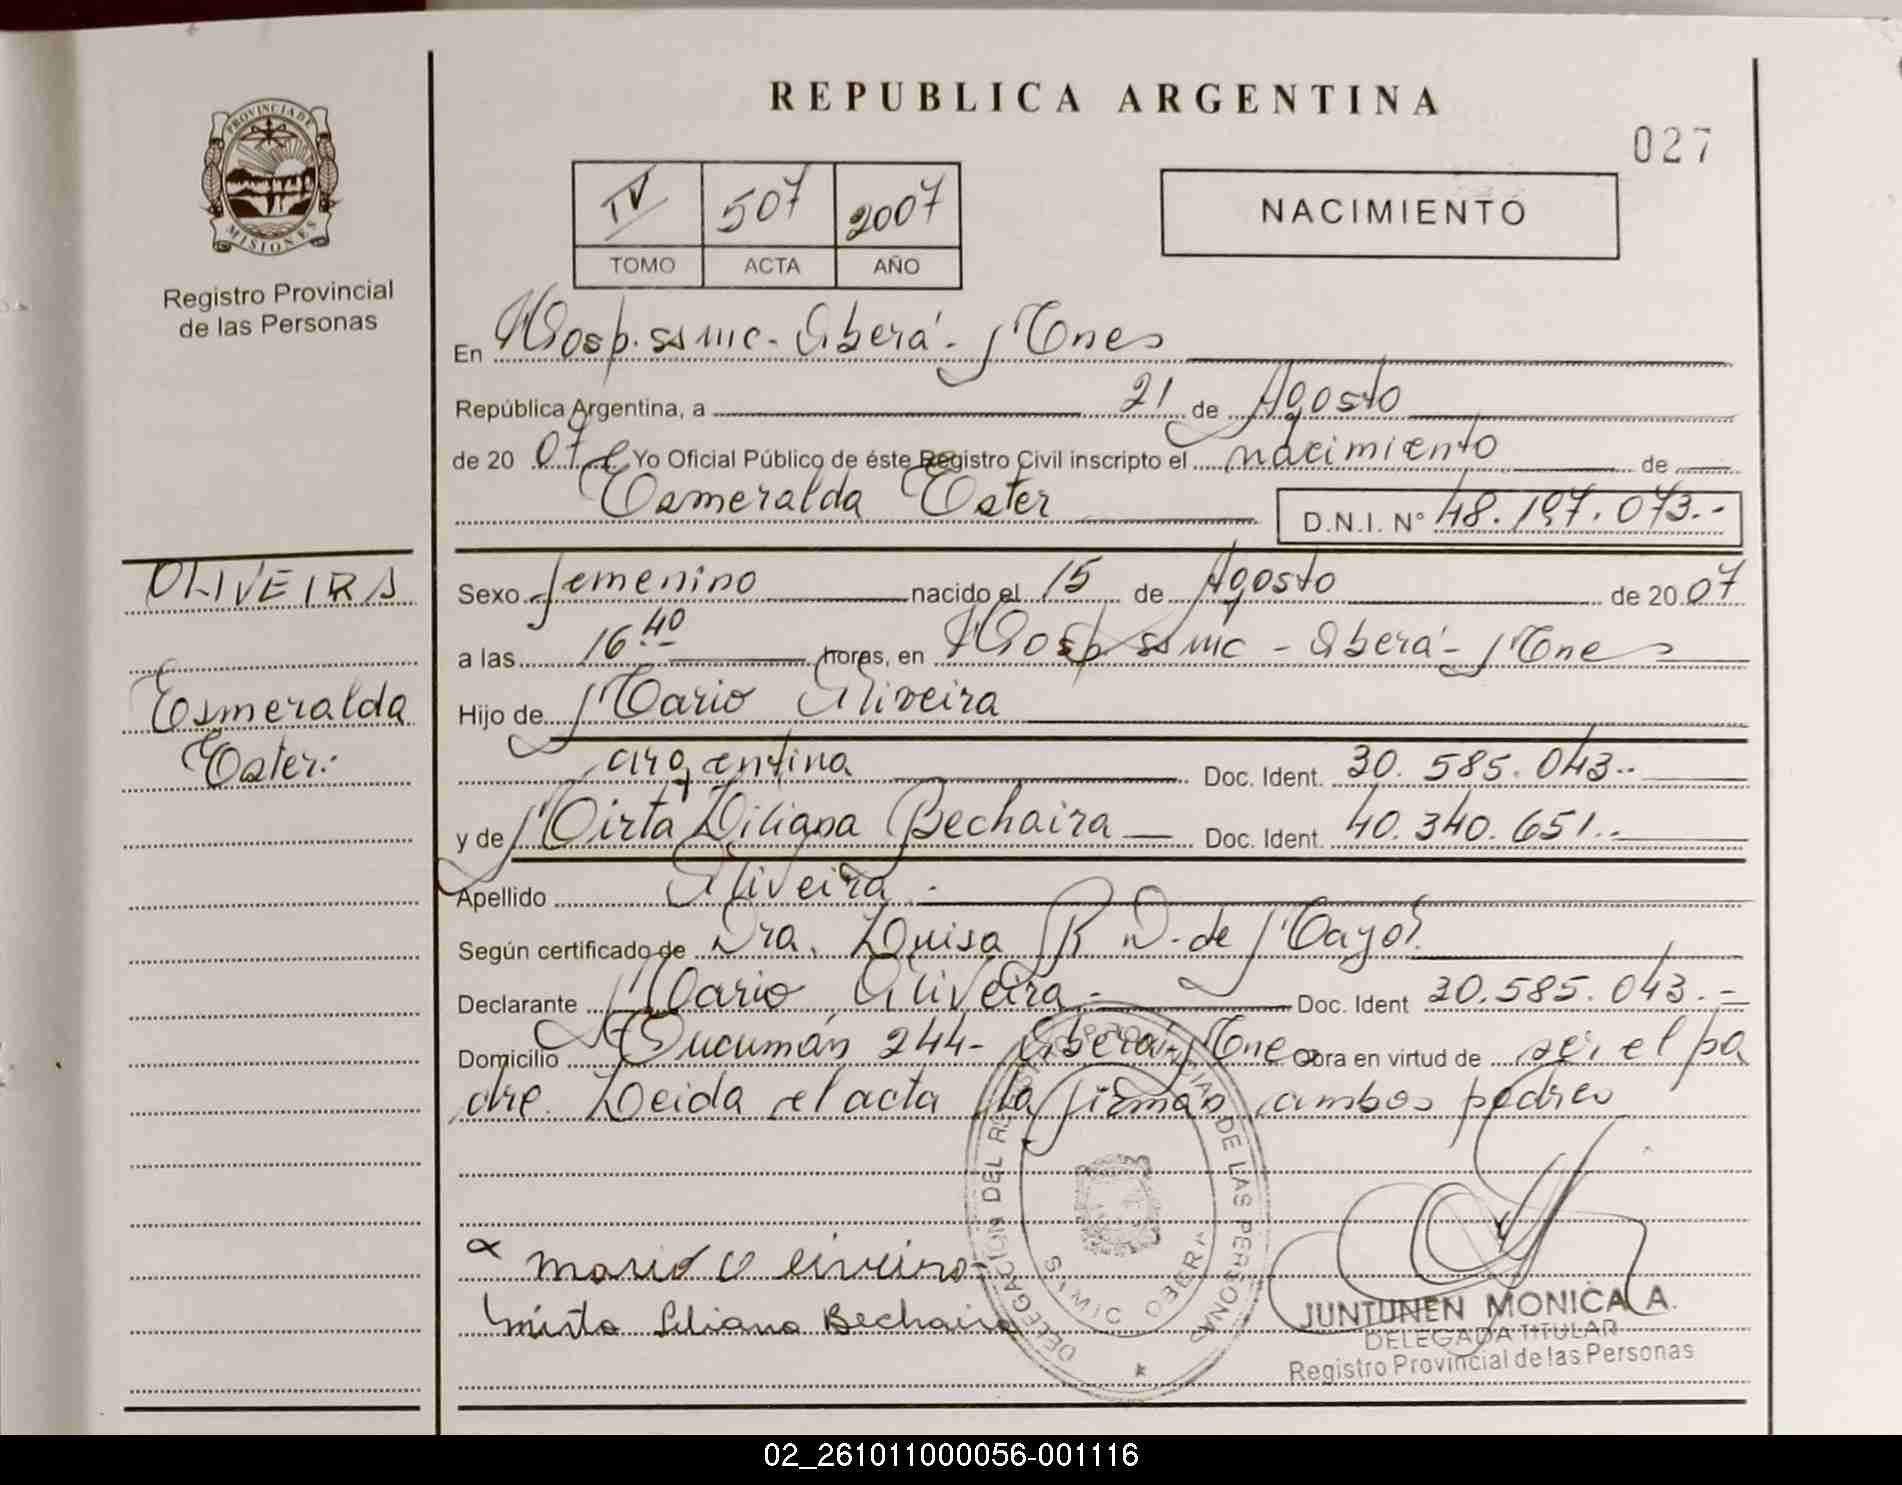 REPUBLICA ARGENTINA
027
PROVINCIA DE MISIONES
Registro Provincial
de las Personas
IV 507 2007
TOMO ACTA AÑO
NACIMIENTO
En Hosp. ss mc - Oberá - Mnes
República Argentina, a 21 de Agosto
de 2007 Yo Oficial Público de éste Registro Civil inscripto el nacimiento de
Esmeralda Ester D.N.I. N° 48.197.073.-
OLIVEIRA
Esmeralda
Ester.
Sexo femenino nacido el 15 de Agosto de 2007
a las 16 40 horas, en Hosp ss mc - Oberá - Mnes
Hijo de Mario Oliveira
argentina Doc. Ident. 30.585.043.-
y de Mirta Liliana Bechaira Doc. Ident. 40.340.651.-
Apellido Oliveira.
Según certificado de Dra. Luisa R D. de Mayol
Declarante Mario Oliveira - Doc. Ident 30.585.043.-
Domicilio Tucumán 244 - Oberá Mnes Obra en virtud de ser el pa
dre. Leida el acta la firman ambos padres
mario Oliveira
mirta Liliana Bechaira
DELEGACION DEL REGISTRO PROVINCIAL DE LAS PERSONAS
SAMIC OBERA
JUNTUNEN MONICA A.
DELEGADA TITULAR
Registro Provincial de las Personas
02_261011000056-001116